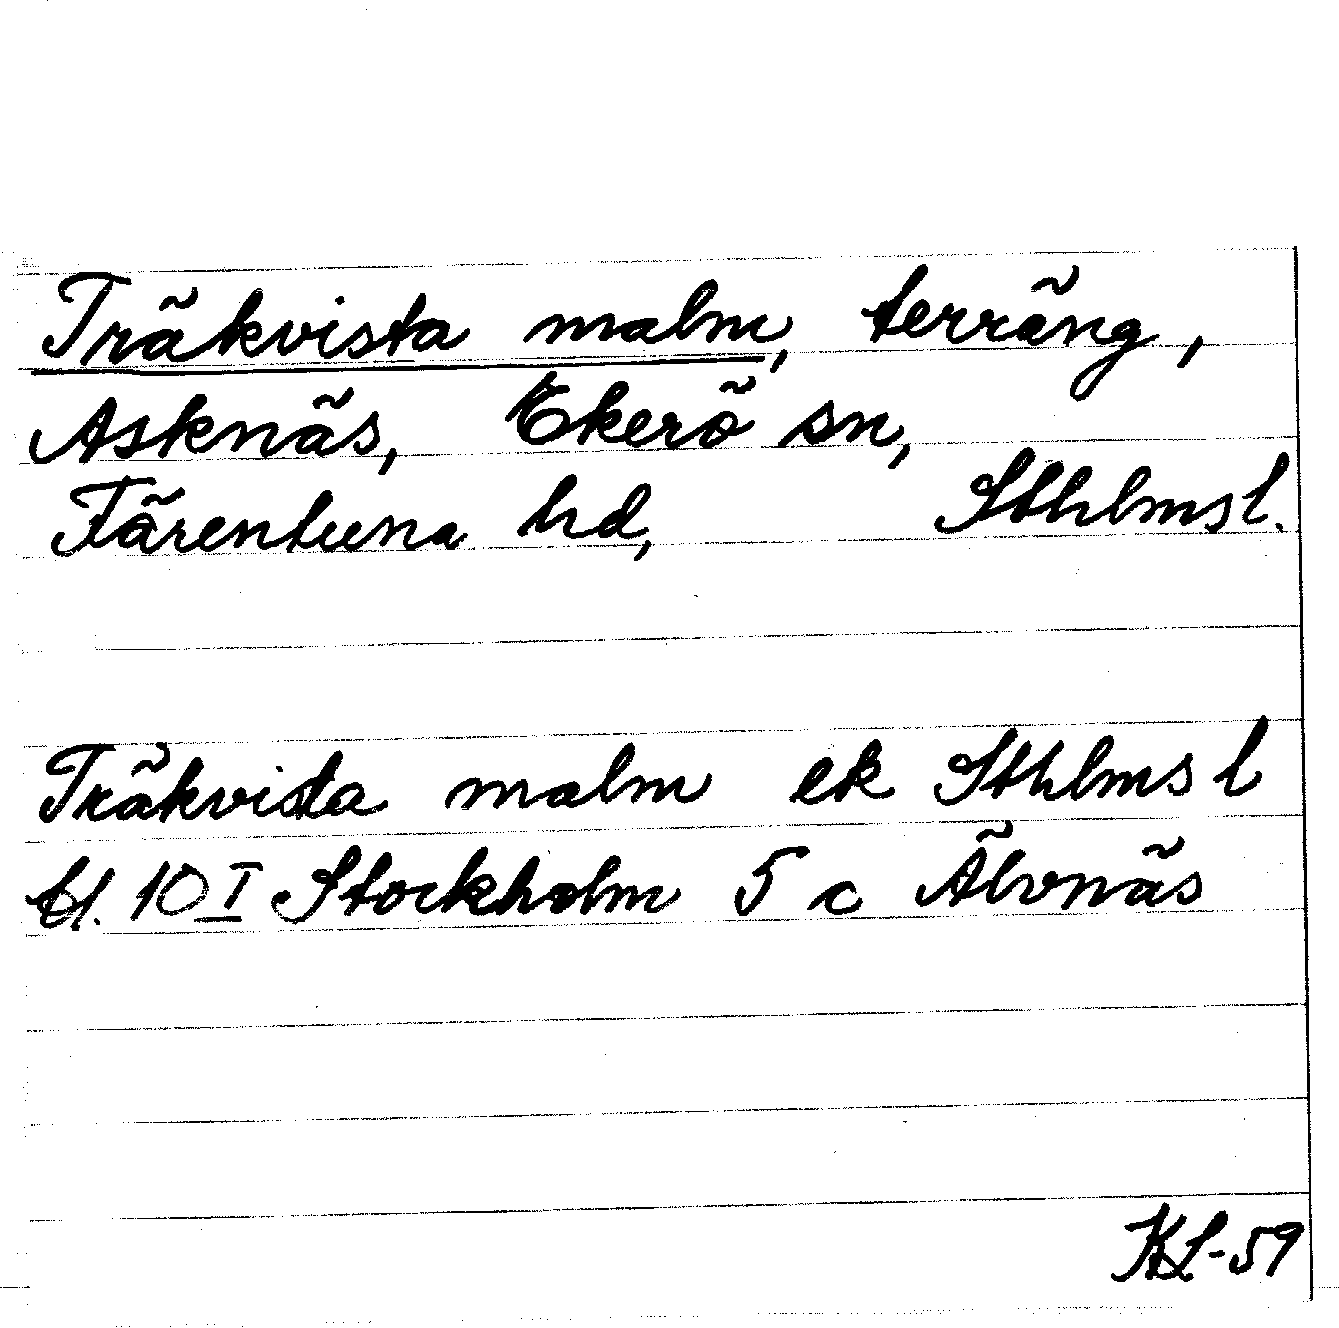 Träkvista malm, terräng,
Asknäs, Ekerö sn,
Färentuna hd, Sthlmsl.
Träkvista malm ek Sthlms l
bl. 10 I Stockholm 5 c Älvnäs
KL-59